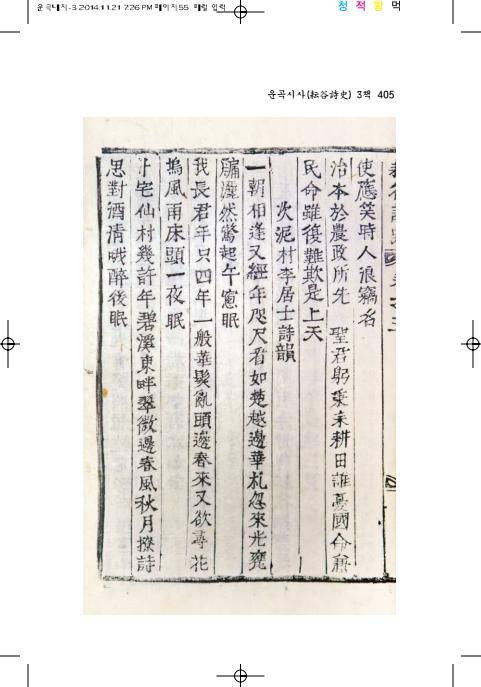 운곡내지-3 2014.11.21 7:26 PM 페이지55 매일 입력
청 적 황 먹
운곡시사(耘谷詩史) 3책 405
使應笑時人浪竊名
治本於農政所先 聖君躬秉耒耕田誰憂國命兼
民命雖復難欺是上天
次泥村李居士詩韻
一朝相逢又經年咫尺看如楚越邊華札忽來光甕
牖灑然驚起午窓眠
我長君年只四年一般華鬢亂頭邊春來又欲尋花
塢風雨床頭一夜眠
卜宅仙村幾許年碧溪東畔翠微邊春風秋月撩詩
思對酒淸哦醉後眠